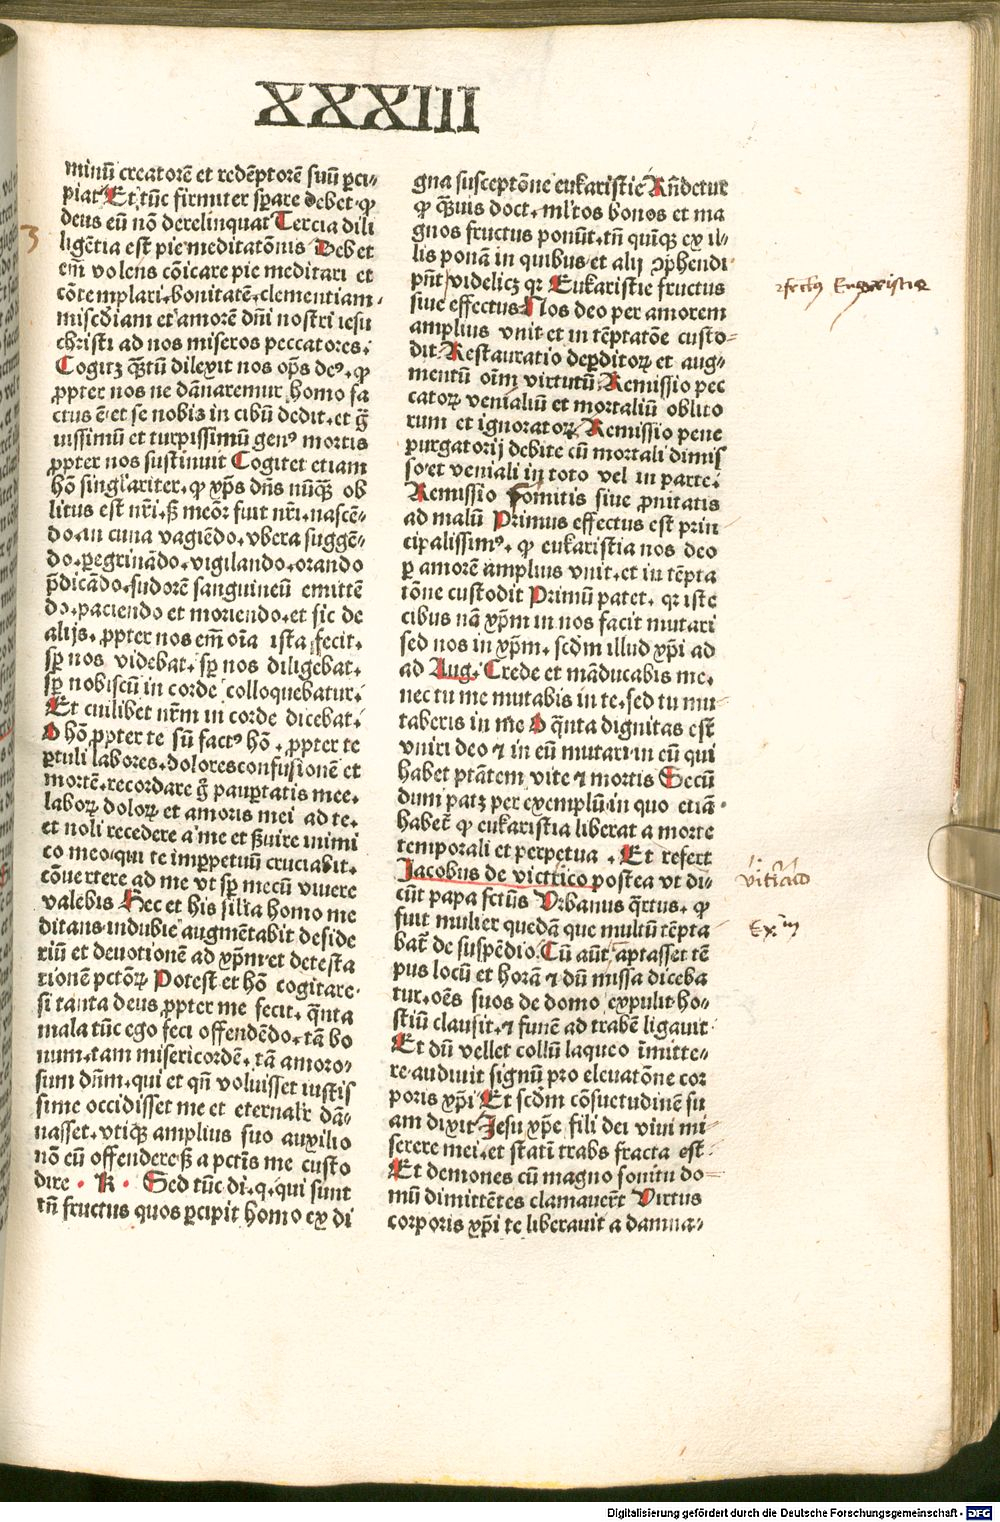 XXXIII
minū creatorē et redēptorē suū ꝑci⸗
piat Et tūc firmiter sꝑare debet ꝙ
deus eū nō derelinquat Tercia dili
3
ligētia est pie meditatōnis Debet
em̄ volens cōicare pie meditari et
cōtemplari bonitatē clementiam
misc̄diam et amorē dn̄i nostri iesu
christi ad nos miseros peccatores.
Cogitꝫ q̄stū dilexit nos op̄s deꝰ. ꝙ
ꝓpter nos ne dānaremur homo fa
ctus ē et se nobis in cibū dedit. et g̈
uissimū et turpissimū genꝰ mortis
ꝓpter nos sustinuit Cogitet etiam
hō singl'ariter. ꝙ xp̄s dn̄s nūq̄ ob
litus est nr̄i. sꝫ meōr fuit nr̄i. nascē⸗
do. in cuna vagiēdo. vbera suggē⸗
do. ꝑegrinādo. vigilando. orando
p̄dicādo. sudorē sanguineū emittē
do. paciendo et moriendo. et sic de
alijs. ꝓpter nos em̄ oīa ista fecit.
sꝑ nos videbat. sꝑ nos diligebat.
sꝑ nobiscū in corde colloquebatur.
Et cuilibet nr̄m in corde dicebat.
O hō ꝓpter te sū factꝰ hō . ꝓpter te
ꝑtuli labores. dolores confusionē et
mortē. recordare g̊ pauꝑtatis mee.
laboꝝ doloꝝ et amoris mei ad te.
et noli recedere a me et ẜuire inimi
co meo. qui te imꝑpetuū cruciabit.
cōuertere ad me vt sꝑ mecū viuere
valebis Hec et his silia homo me
ditans indubie augmētabit deside
riū et deuotionē ad xp̄m et detesta
tionē pctōꝝ Potest et hō cogitare.
si tanta deus ꝓpter me fecit. q̄nta
mala tūc ego feci offendēdo. tā bo
num. tam misericordē. tā amoro⸗
sum dn̄m. qui et qn̄ voluisset iustis
sime occidisset me et eternalr̄ dā⸗
nasset. vtiqꝫ amplius suo auxilio
nō eū offendere sꝫ a pctīs me custo
dire . R . Sed tūc di. q. qui sunt
tn̄ fructus quos ꝑcipit homo ex di
gna susceptōne eukaristie Rn̄detur
ꝙ q̄uis doct. ml'tos bonos et ma
gnos fructus ponūt. tn̄ quīqꝫ ex il⸗
lis ponā in quibus et alij ꝯphendi
pn̄t videlicꝫ qꝛ Eukaristie fructus
siue effectus Nos deo per amorem
amplius vnit et in tēptatōe custo⸗
dit. Restauratio deꝑditoꝝ et aug⸗
mentū oīm virtutū Remissio pec
catoꝝ venialiū et mortaliū oblito
rum et ignoratoꝝ Remissio pene
purgatorij debite cū mortali dimis
so et veniali in toto vel in parte.
Remissio fomitis siue ꝓnitatis
ad malū Primus effectus est prin
cipalissimꝰ. ꝙ eukaristia nos deo
ꝑ amorē amplius vnit. et in tēpta
tōne custodit Primū patet. qꝛ iste
cibus nā xp̄m in nos facit mutari
sed nos in xp̄m. scd̄m illud xp̄i ad
ad Aug. Crede et māducabis me.
nec tu me mutabis in te. sed tu mu⸗
taberis in me O q̄nta dignitas est
vniri deo ⁊ in eū mutari in eū qui
habet ptātem vite ⁊ mortis Secū
dum patꝫ per exemplū in quo etiā
habet̄ ꝙ eukaristia liberat a morte
temporali et perpetua . Et refert
Jacobus de victrico postea vt di⸗
cūt papa fctūs Vrbanus q̄rtus. ꝙ
fuit mulier quedā que multū tēpta
bat̄ de suspēdio. Cū aūt aptasset tē
pus locū et horā ⁊ dū missa diceba
tur. oēs suos de domo expulit ho⸗
stiū clausit. ⁊ funē ad trabē ligauit
Et dū vellet collū laqueo īmitte⸗
re audiuit signū pro eleuatōne cor
poris xp̄i Et scd̄m cōsuetudinē su
am dixit Jesu xp̄e fili dei viui mi⸗
serere mei. et statī trabs fracta est
Et demones cū magno sonitu do⸗
mū dimittētes clamauer̄t Virtus
corporis xp̄i te liberauit a damna⸗